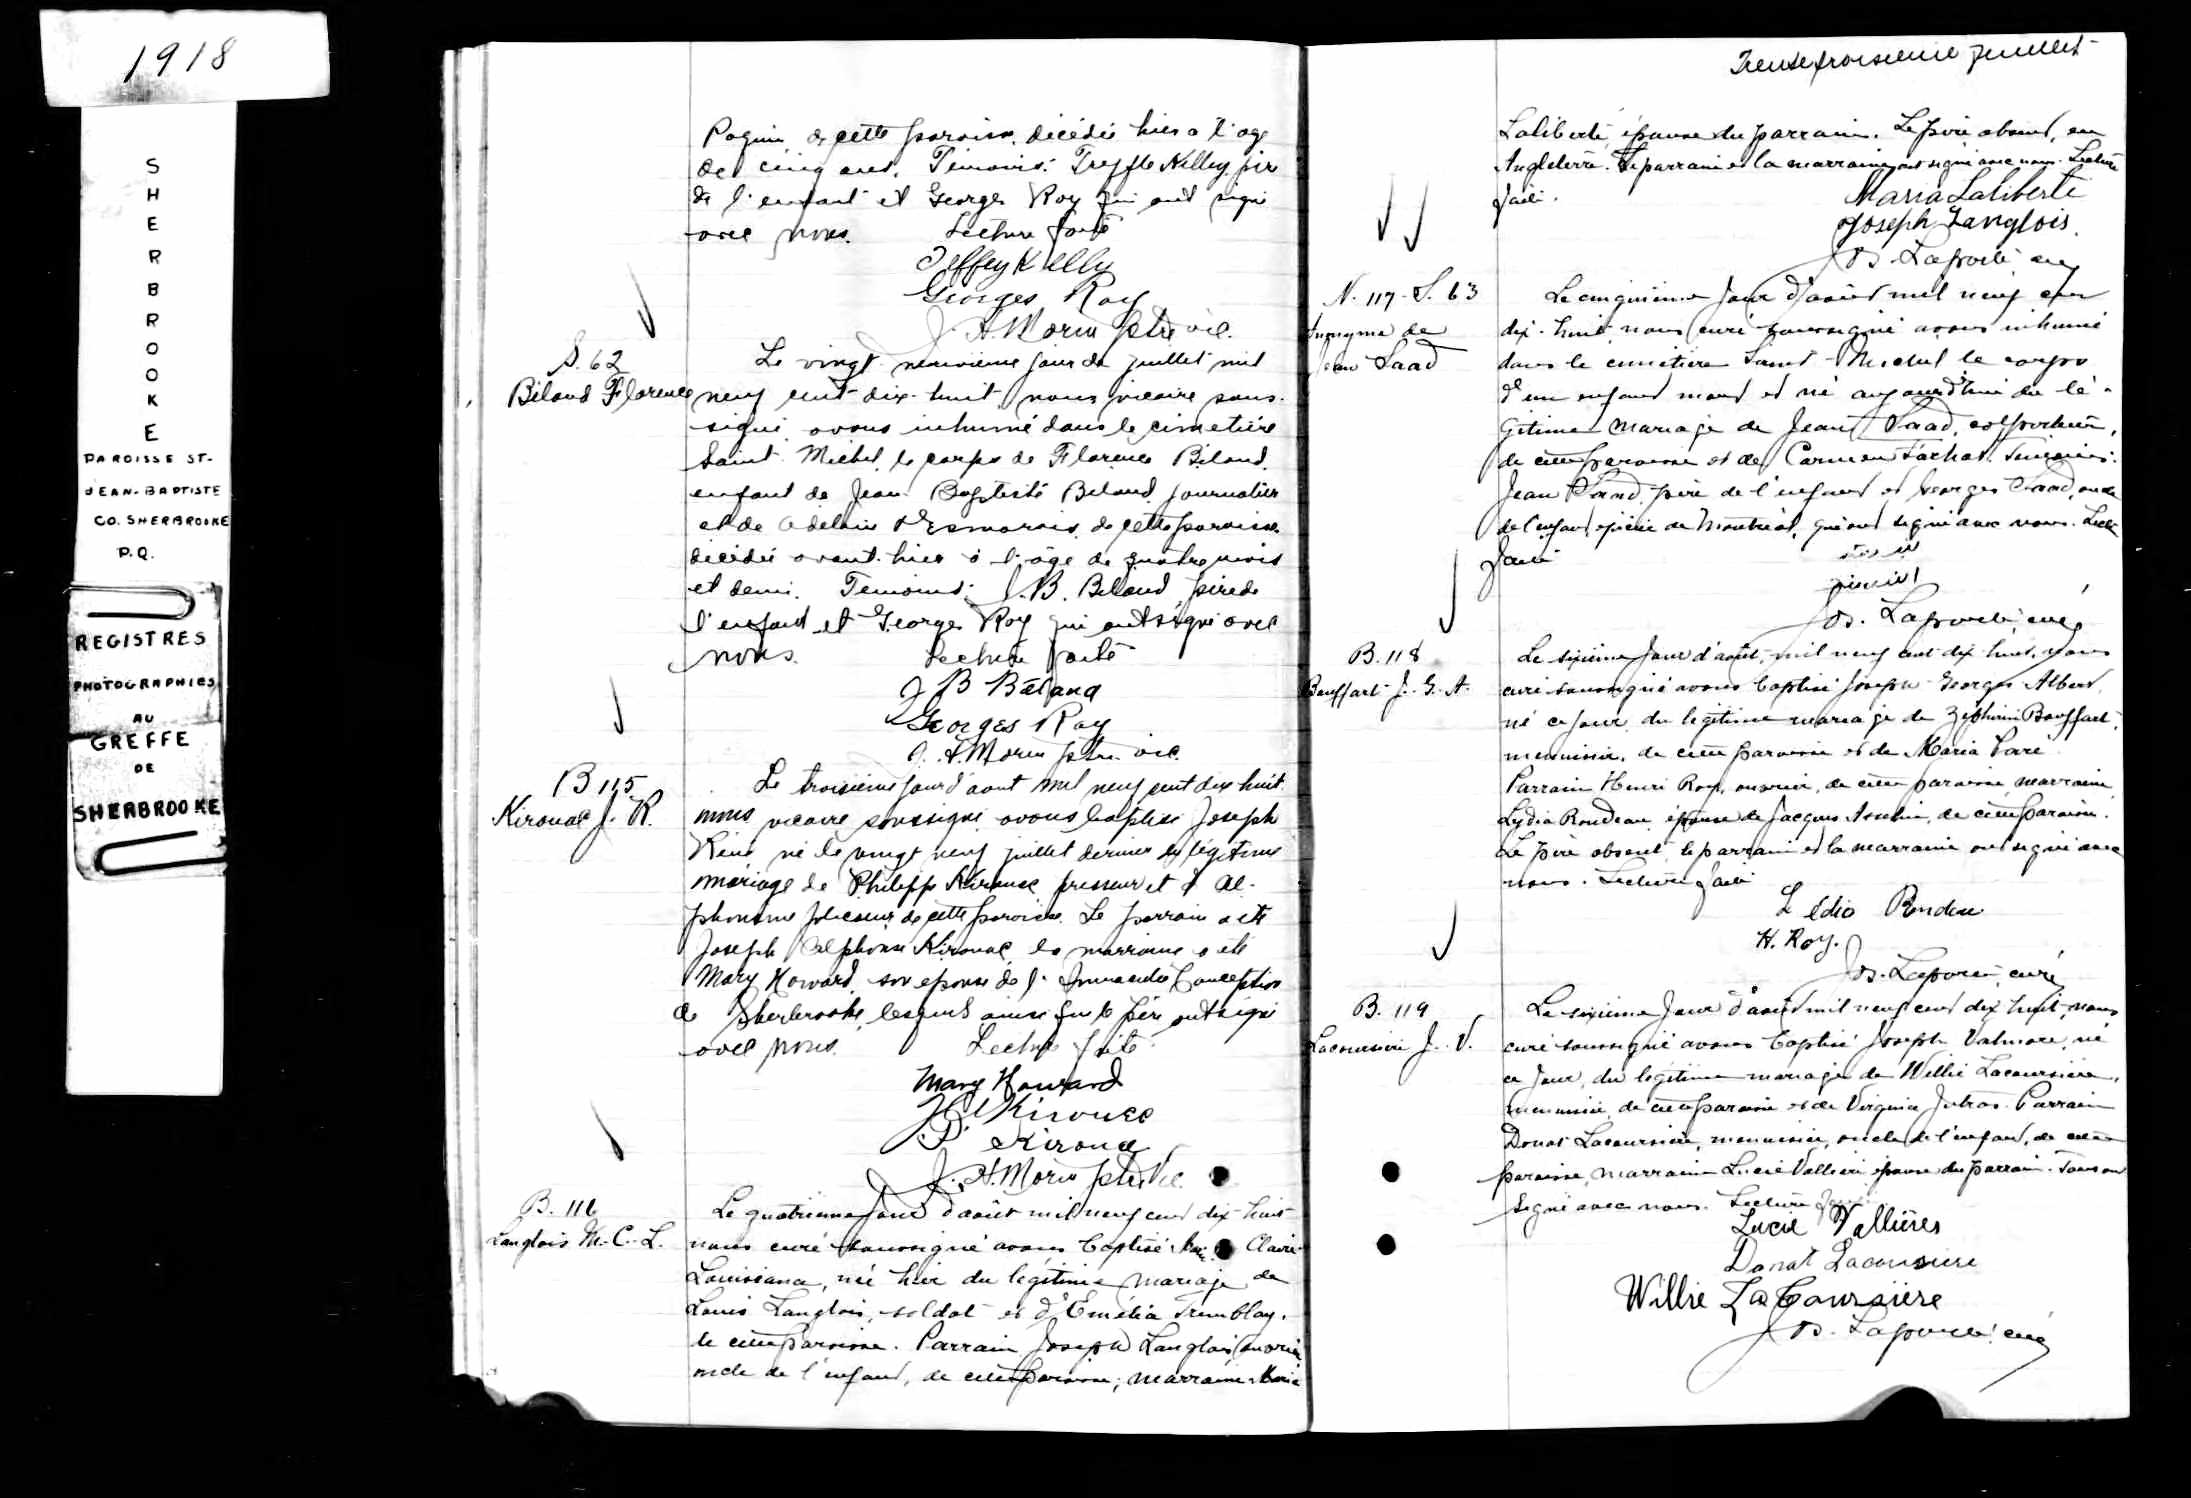 1918
SHERBROOKE
PAROISSE ST-
JEAN-BAPTISTE
CO. SHERBROOKE
P.Q.
REGISTRES
PHOTOGRAPHIES
AU
GREFFE
DE
SHERBROOKE
de cette paroisse, décédée hier a l'age
de cinq ans. Témoins: Treffle Kelley, père
de l'enfant et Georges Roy qui ont signé
avec nous. Lecture faite
Jeffey Kelly
Georges Roy
J. A. Morin ptre vic.
S. 62
Béland Florence
Le vingt neuvième jour de juillet mil
neuf cent dix-huit nous vicaire sous-
signé avons inhumé dans le cimetière
Saint Michel, le corps de Florence Béland,
enfant de Jean Baptiste Beland journalier
et de Adelaire Desmarais, de cette paroisse
décédée avant-hier à l'âge de quatre mois
et demi. Temoins: J.B. Beland, père de
l'enfant et Georges Roy qui ont signé avec
nous. Lecture faite
J B Béland
Georges Roy
J. A. Morin ptre vic.
B 115
Kirouac J. R.
Le troisième jour d'aout mil neuf cent dix huit
nous vicaire soussigné avons baptisé Joseph
René né le vingt neuf juillet dernier du légitime
mariage de Philippe Kirouac presseur et d' Al-
phonsine de cette paroisse. Le parrain a été
Joseph Alphonse Kirouac, la marraine a été
Mary Howard, son epouse de l' Immaculée Conception
de Sherbrooke, lesquels ainsi que le père ont signé
avec nous. Lecture faite
Mary Howard
Kirouac
P. Kirouac
J. A. Morin ptre Vic.
B. 116
Langlois M.-C.-L.
Le quatrième jour d'août mil neuf cent dix-huit
nous curé soussigné avons baptisé Claire
Louisiana, née hier du légitime mariage de
Louis Langlois, soldat et d'Emélia Tremblay,
de cette paroisse. Parrain Joseph Langlois, ouvrier
oncle de l'enfant, de cette paroisse; marraine Maria
Trente troisième feuillet
Laliberté, épouse du parrain. Le père absent, en
Angleterre. Le parrain et la marraine ont signé avec nous. Lecture
faite.
Maria Laliberté
Joseph Langlois.
Jos. Laporte, curé
N. 117 - S. 63
Anonyme de
Jean Saad
Le cinquième jour d'août mil neuf cent
dix-huit, nous curé soussigné avons inhumé
dans le cimetière Saint-Michel le corps
d'un enfant mort et né aujourd'hui du lé-
gitime mariage de Jean Saad, colporteur,
de cette paroisse et de Carmen Témoins:
Jean Saad, père de l'enfant et Georges Saad, oncle
de l'enfant, épicier de Montréal, qui ont signé avec nous. Lecture
faite
Jos. Laporte, curé
B. 118
Bouffart J. G. A.
Le sixième jour d'août, mil neuf cent dix-huit, nous
curé soussigné avons baptisé Joseph Georges Albert,
né ce jour, du légitime mariage de Zéphirin Bouffart,
menuisier, de cette paroisse et de Maria
Parrain Henri Roy, ouvrier, de cette paroisse, marraine
Lydia Rondeau, épouse de Jacques Asselin, de cette paroisse.
Le père absent, le parrain et la marraine ont signé avec
nous. Lecture faite
Lédia Rondeau
H. Roy.
Jos. Laporte, curé
B. 119
Lacoursière J. V.
Le sixième jour d'août mil neuf cent dix huit, nous
curé soussigné avons baptisé Joseph Valmore, né
ce jour, du légitime mariage de Willie Lacoursière,
menuisier, de cette paroisse et de Virginie Jutras. Parrain
Donat Lacoursière, menuisier, oncle de l'enfant, de cette
paroisse, marraine Lucie Vallière, épouse du parrain. Tous ont
signé avec nous. Lecture faite
Lucie Vallières
Donat Lacoursiere
Willie LaCoursière
Jos. Laporte, curé